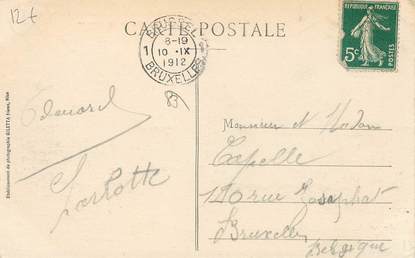 12€
CARTE POSTALE
BRUSSEL
8-19
1 10 · IX
1912
BRUXELLES
REPUBLIQUE FRANÇAISE
5c
POSTES
83
Edouard
Monsieur et Madam
Capelle
rue Josaphat
Bruxelles
Belgique
Etablissement de photographie GILETTA frères, Nice